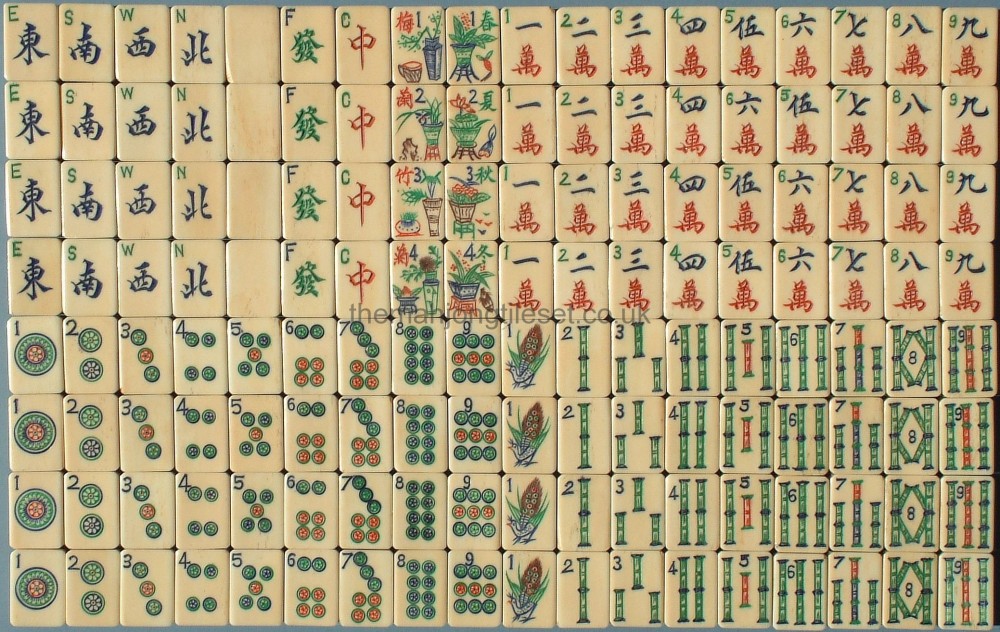 E 東 S 南 W 西 N 北 F 發 C 中 梅 1 1 春 1 一 萬 2 二 萬 3 三 萬 4 四 萬 5 伍 萬 6 六 萬 7 七 萬 8 八 萬 9 九 萬
E 東 S 南 W 西 N 北 F 發 C 中 蘭 2 2 夏 1 一 萬 2 二 萬 3 三 萬 4 四 萬 6 六 萬 5 伍 萬 7 七 萬 8 八 萬 9 九 萬
E 東 S 南 W 西 N 北 F 發 C 中 竹 3 3 秋 1 一 萬 2 二 萬 3 三 萬 4 四 萬 5 伍 萬 6 六 萬 7 七 萬 8 八 萬 9 九 萬
E 東 S 南 W 西 N 北 F 發 C 中 菊 4 4 冬 1 一 萬 2 二 萬 3 三 萬 4 四 萬 5 伍 萬 6 六 萬 7 七 萬 8 八 萬 9 九 萬
themahjongtileset.co.uk
1 2 3 4 5 6 7 8 9 1 2 3 4 5 6 7 8 9
1 2 3 4 5 6 7 8 9 1 2 3 4 5 6 7 8 9
1 2 3 4 5 6 7 8 9 1 2 3 4 5 6 7 8 9
1 2 3 4 5 6 7 8 9 1 2 3 4 5 6 7 8 9